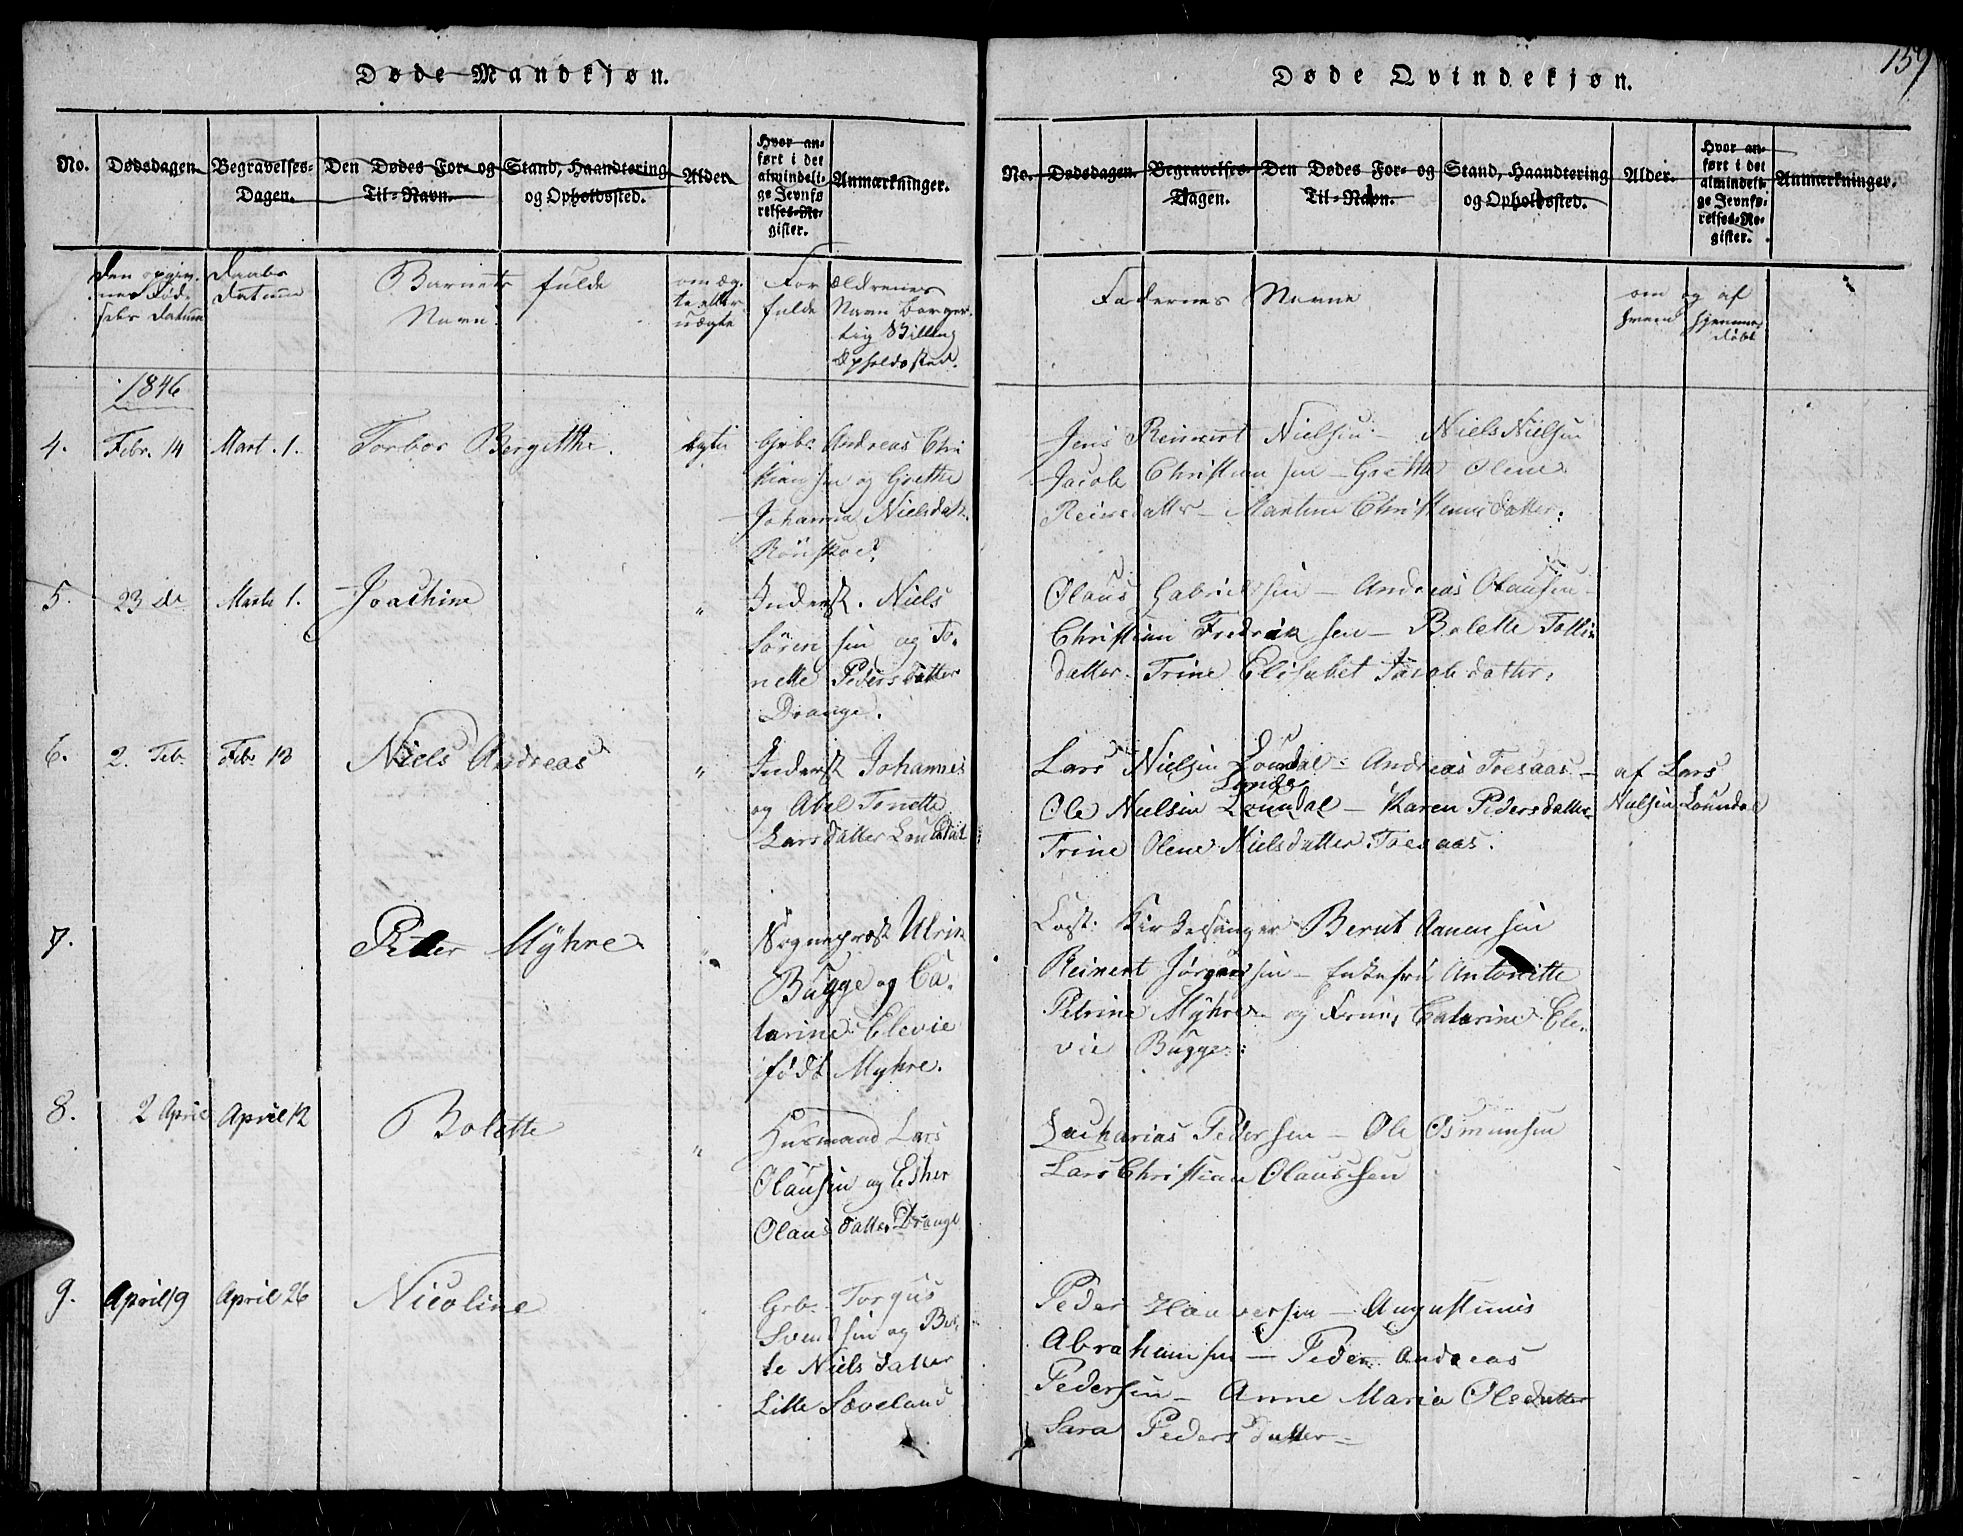 159
Døde Mandkjøn.
No. Dødsdagen. Begravelses-Dagen. Den Dødes For- og Til-Navn. Stand, Haandtering og Opholdssted. Alder. Hvor anført i det almindelige Jevnførelses-Register. Anmærkninger.
Den opgivne Fødselsdatum Daabs Datum Barnets fulde Navn om ægte eller uægte Forældrenes fulde Navn borgerlig Stilling Opholdssted.
1846
4. Febr. 14 Mart. 1. Torbor Bergitthe. Ægte Grbr. Andreas Chri
stiansen og Grethe
Johanna Nielsdat.
5. 23 de Marts 1. Joachim " Inderst. Niels
Sörensen og To-
nette Pedersdatter
Drange.
6. 2. Feb. Feb. 13 Niels Andreas " Inderst Johannes
og Abel Tonette
Larsdatter Loundal
7. Peder Myhre " Sogneprest Ulrik
Bugge og Ca-
tarine Elevie
født Myhre.
8. 2 April April 12 Bolette " Husmand Lars
Olausen og Esther
Olausdatter Drange
9. April 19 April 26 Nicoline " Grbr. Torgus
Svendsen og Ber-
te Nielsdatter
Lille Sæveland
Døde Qvindekjøn.
No. Dødsdagen. Begravelses-Dagen. Den Dødes For- og Til-Navn. Stand, Haandtering og Opholdssted. Alder. Hvor anført i det almindelige Jevnførelses-Register. Anmærkninger.
Faddernes Navne om og af hvem hjemmedøbt
Jens Reinert Nielsen - Niels Nielsen
Jacob Christiansen - Grethe Olene
Reinsdatter - Martine Christensdatter.
Olaus Gabrielsen - Andreas Olausen -
Christian Fredriksen - Bolette Tollis
datter. Trine Elisabet Jacobsdatter.
Lars Nielsen Loundal - Andreas Foesaas - af Lars
Ole Nielsen Loundal - Karen Pedersdatter Nielsen Loundal
Trine Olene Nielsdatter Foesaas.
Const: Kirkesanger Bernt Aanensen
Reinert Jörgensen - Enkefru Antonette
Petrine Myhre - og Fruen Catarine Ele-
vie Bugge.
Zacharias Pedersen - Ole Osmunsen
Lars Christian Olaussen
Peder Haaversen - Augustinus
Abrahamsen - Peder Andreas
Pedersen - Anne Maria Olsdatter
Sara Pedersdatter -